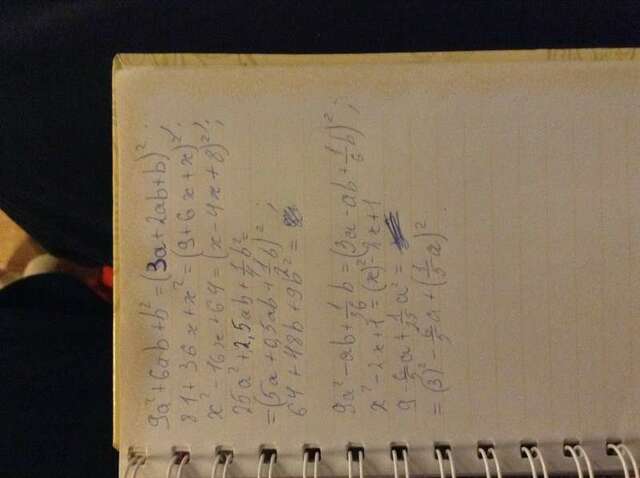 9a² + 6ab + b² = (3a + 2ab + b)²;
81 + 36x + x² = (9 + 6x + x)²;
x² - 16x + 64 = (x - 4x + 8)²;
25a² + 2,5ab + 1/4 b² =
= (5a + 0,5ab + 1/2 b)²;
64 + 48b + 9b² =
9a² - ab + 1/36 b = (3a - ab + 1/6 b)²;
x² - 2x + 1 = (x)² - 2x + 1
9 - 6/5 a + 1/25 a² =
= (3)² - 6/5 a + (1/5 a)²